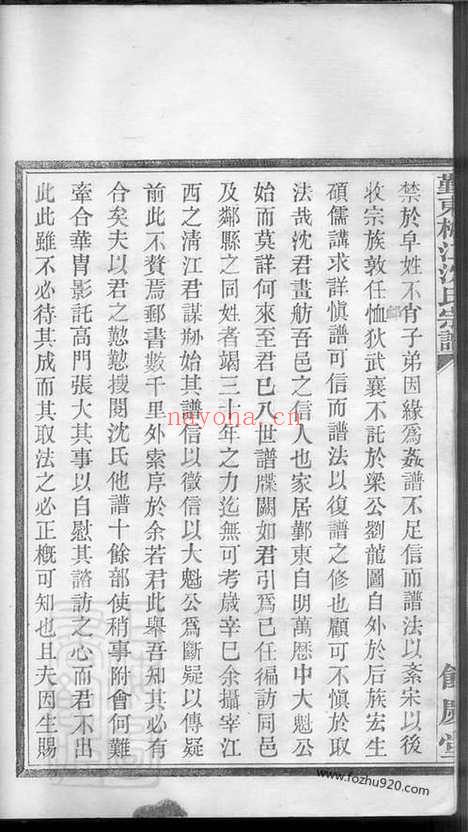 鄞東梅江沈氏宗譜
餘慶堂
禁於卑姓不肖子弟因緣爲姦譜不足信而譜法以紊宋以後
收宗族敦任恤狄武襄不託於梁公劉龍圖自外於后族宏生
碩儒講求詳愼譜可信而譜法以復譜之修也顧可不愼於取
法哉沈君畫舫吾邑之信人也家居鄞東自明萬厯中大魁公
始而莫詳何來至君已八世譜牒闕如君引爲己任徧訪同邑
及鄰縣之同姓者竭三十年之力迄無可考歲辛巳余攝宰江
西之淸江君謀剏始其譜信以徵信以大魁公爲斷疑以傳疑
前此不贅焉郵書數千里外索序於余若君此舉吾知其必有
合矣夫以君之懃懃搜閱沈氏他譜十餘部使稍事附會何難
牽合華胄影託高門張大其事以自慰其諮訪之心而君不出
此此雖不必待其成而其取法之必正槪可知也且夫因生賜
nayona.cn
www.fozhu920.com